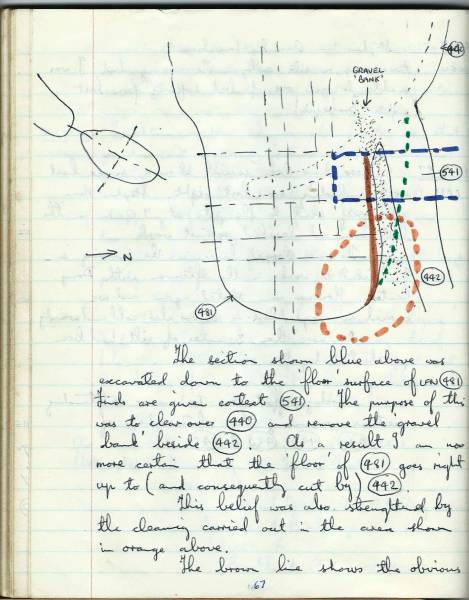 440
GRAVEL
'BANK'
541
N
442
481
The section shown blue above was
excavated down to the 'floor' surface of UFN 481
Finds are given context 541. The purpose of this
was to clear over 440 and remove the gravel
'bank' beside 442. As a result I am now
more certain that the 'floor' of 481 goes right
up to (and consequently cut by) 442.
This belief was also strenghtend by
the cleaning carried out in the area shown
in orange above.
The brown line shows the obvious
67